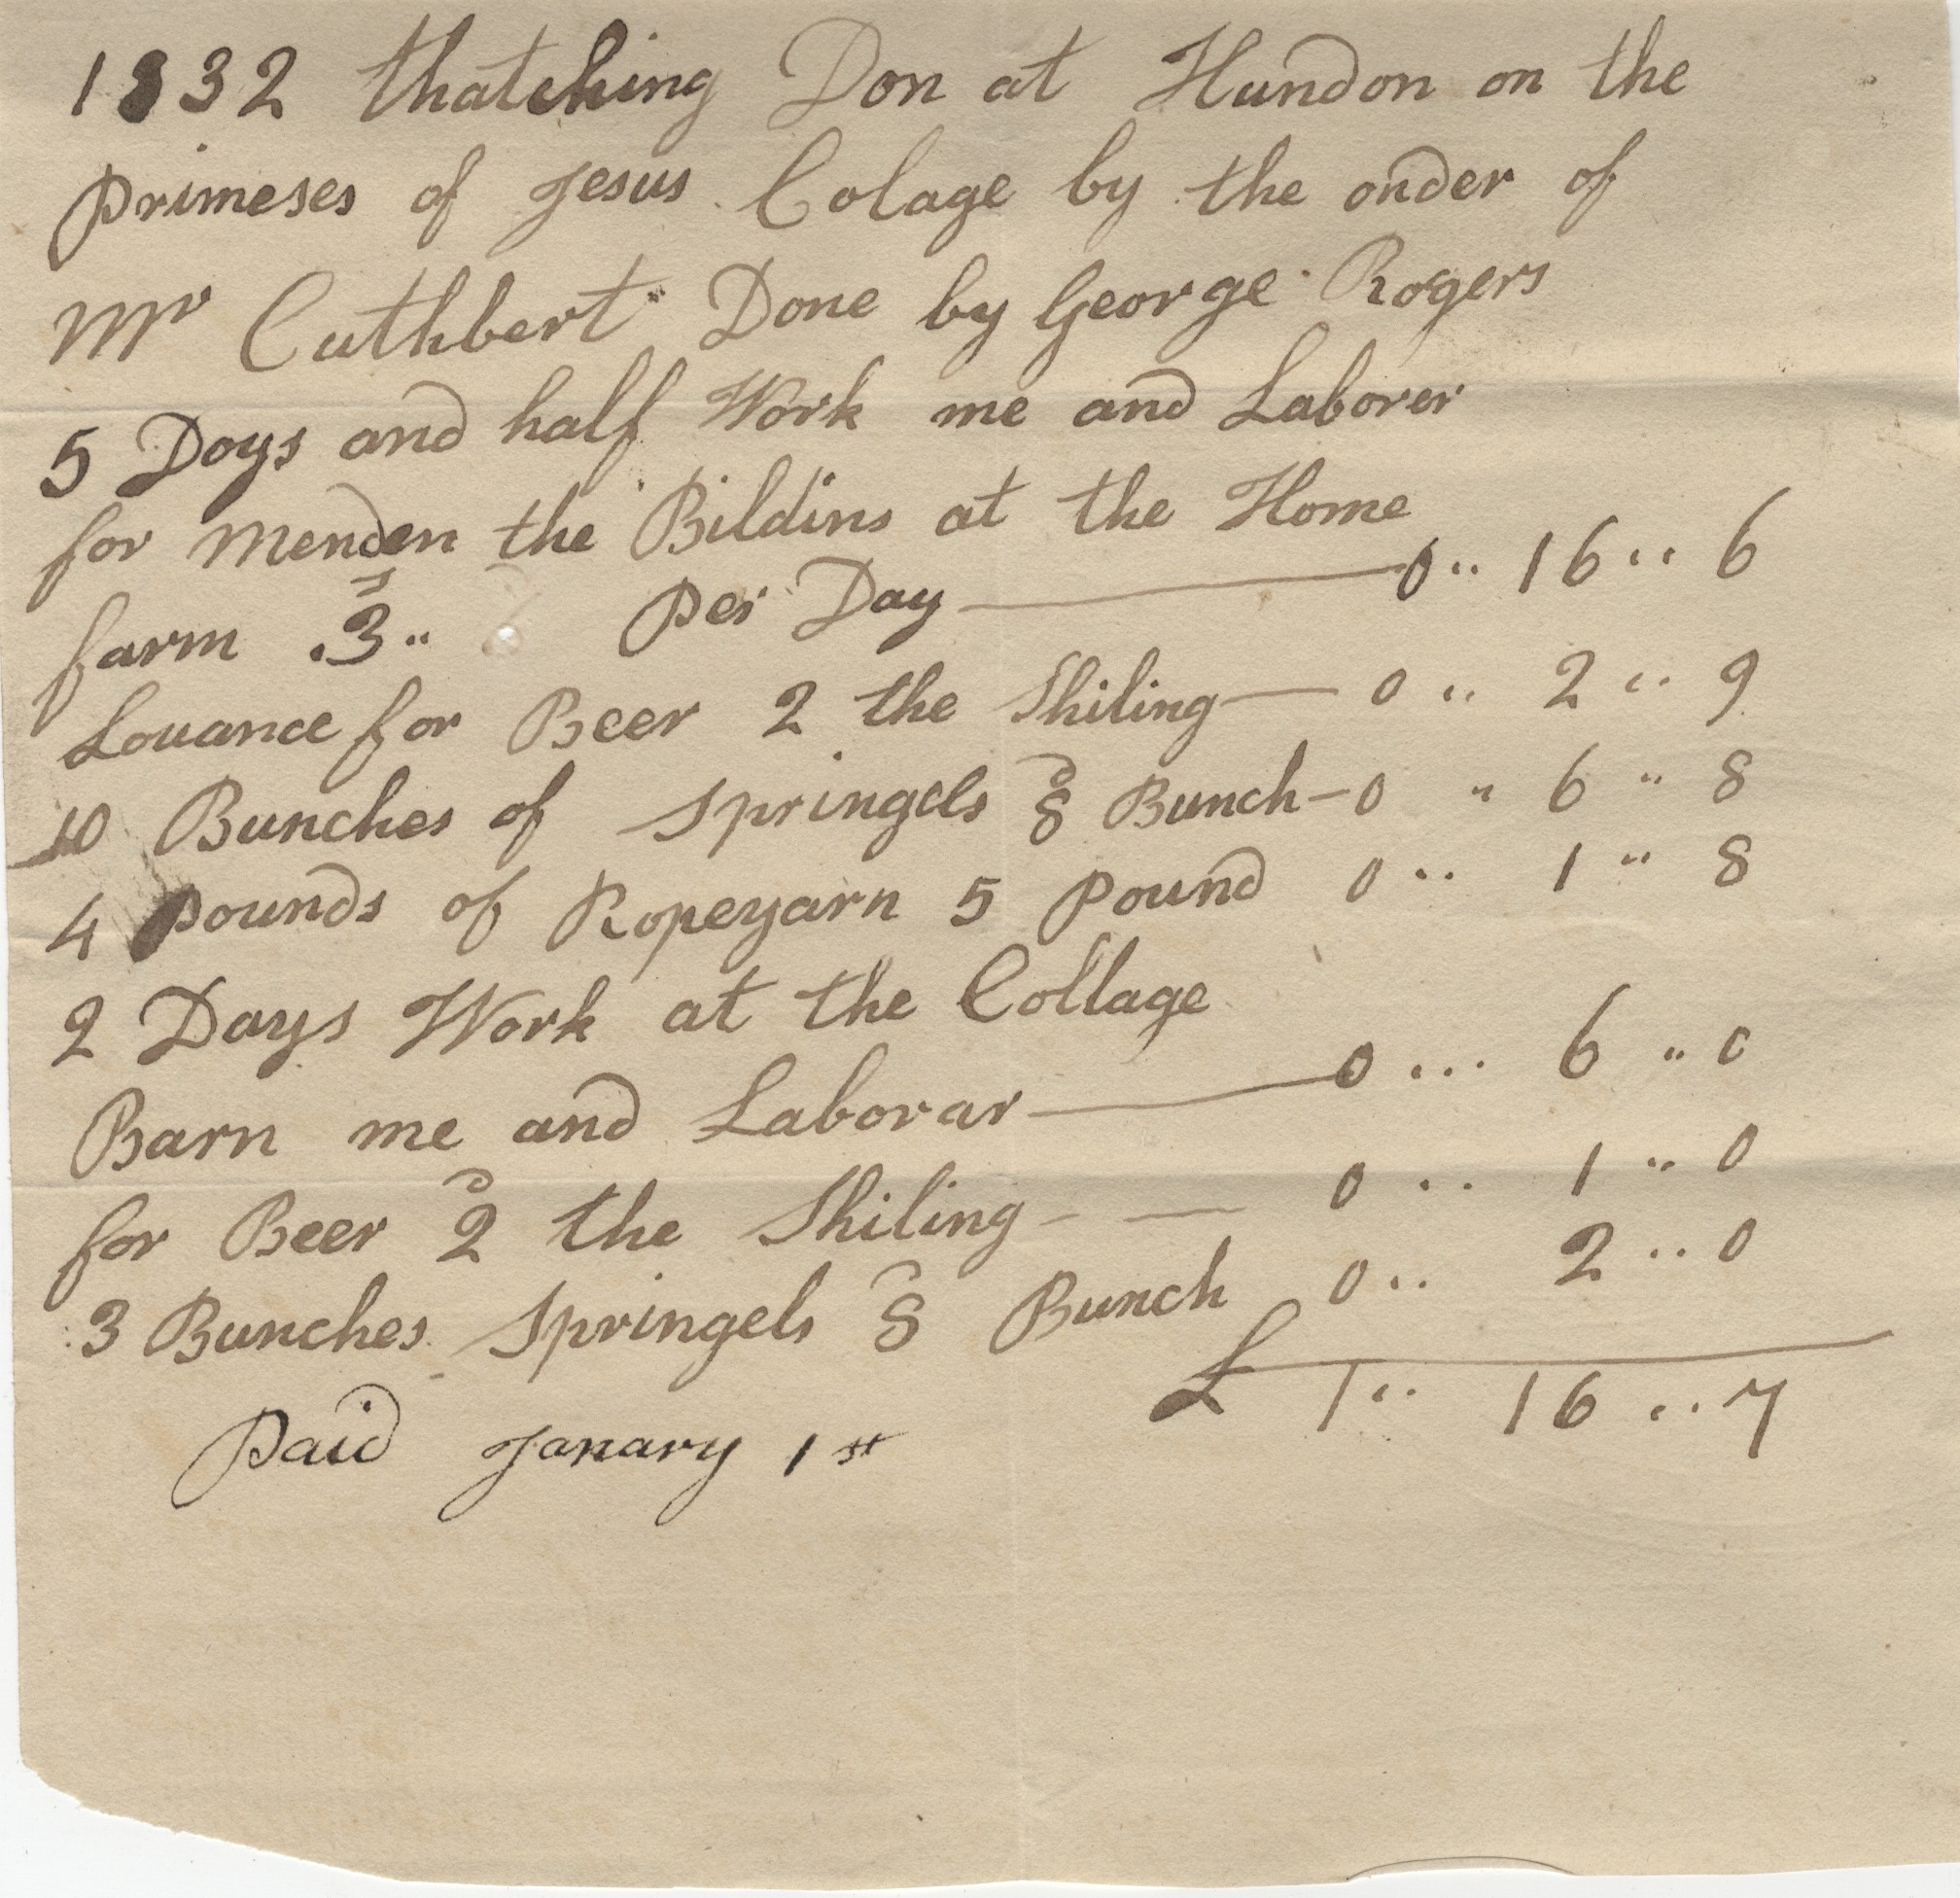 1832 thatching Don at Hundon on the
Primeses of Jesus Colage by the onder of
Mr Cuthbert Done by George Rogers
5 Doys and half Work me and Laborer
for Menden the Bildins at the Home
farm .3.. s Per Day — 0 .. 16 .. 6
Louance for Beer 2 the Shiling — 0 .. 2 .. 9
10 Bunches of Springels 8 d Bunch — 0 .. 6 .. 8
4 Pounds of Ropeyarn 5 Pound 0 .. 1 .. 8
2 Days Work at the Collage
Barn me and Laborar — 0 ... 6 .. 0
for Beer 2 d the Shiling - — 0 .. 1 .. 0
3 Bunches Springels 8 d Bunch 0 .. 2 .. 0
£ 1 .. 16 .. 7
Paid Janary 1st